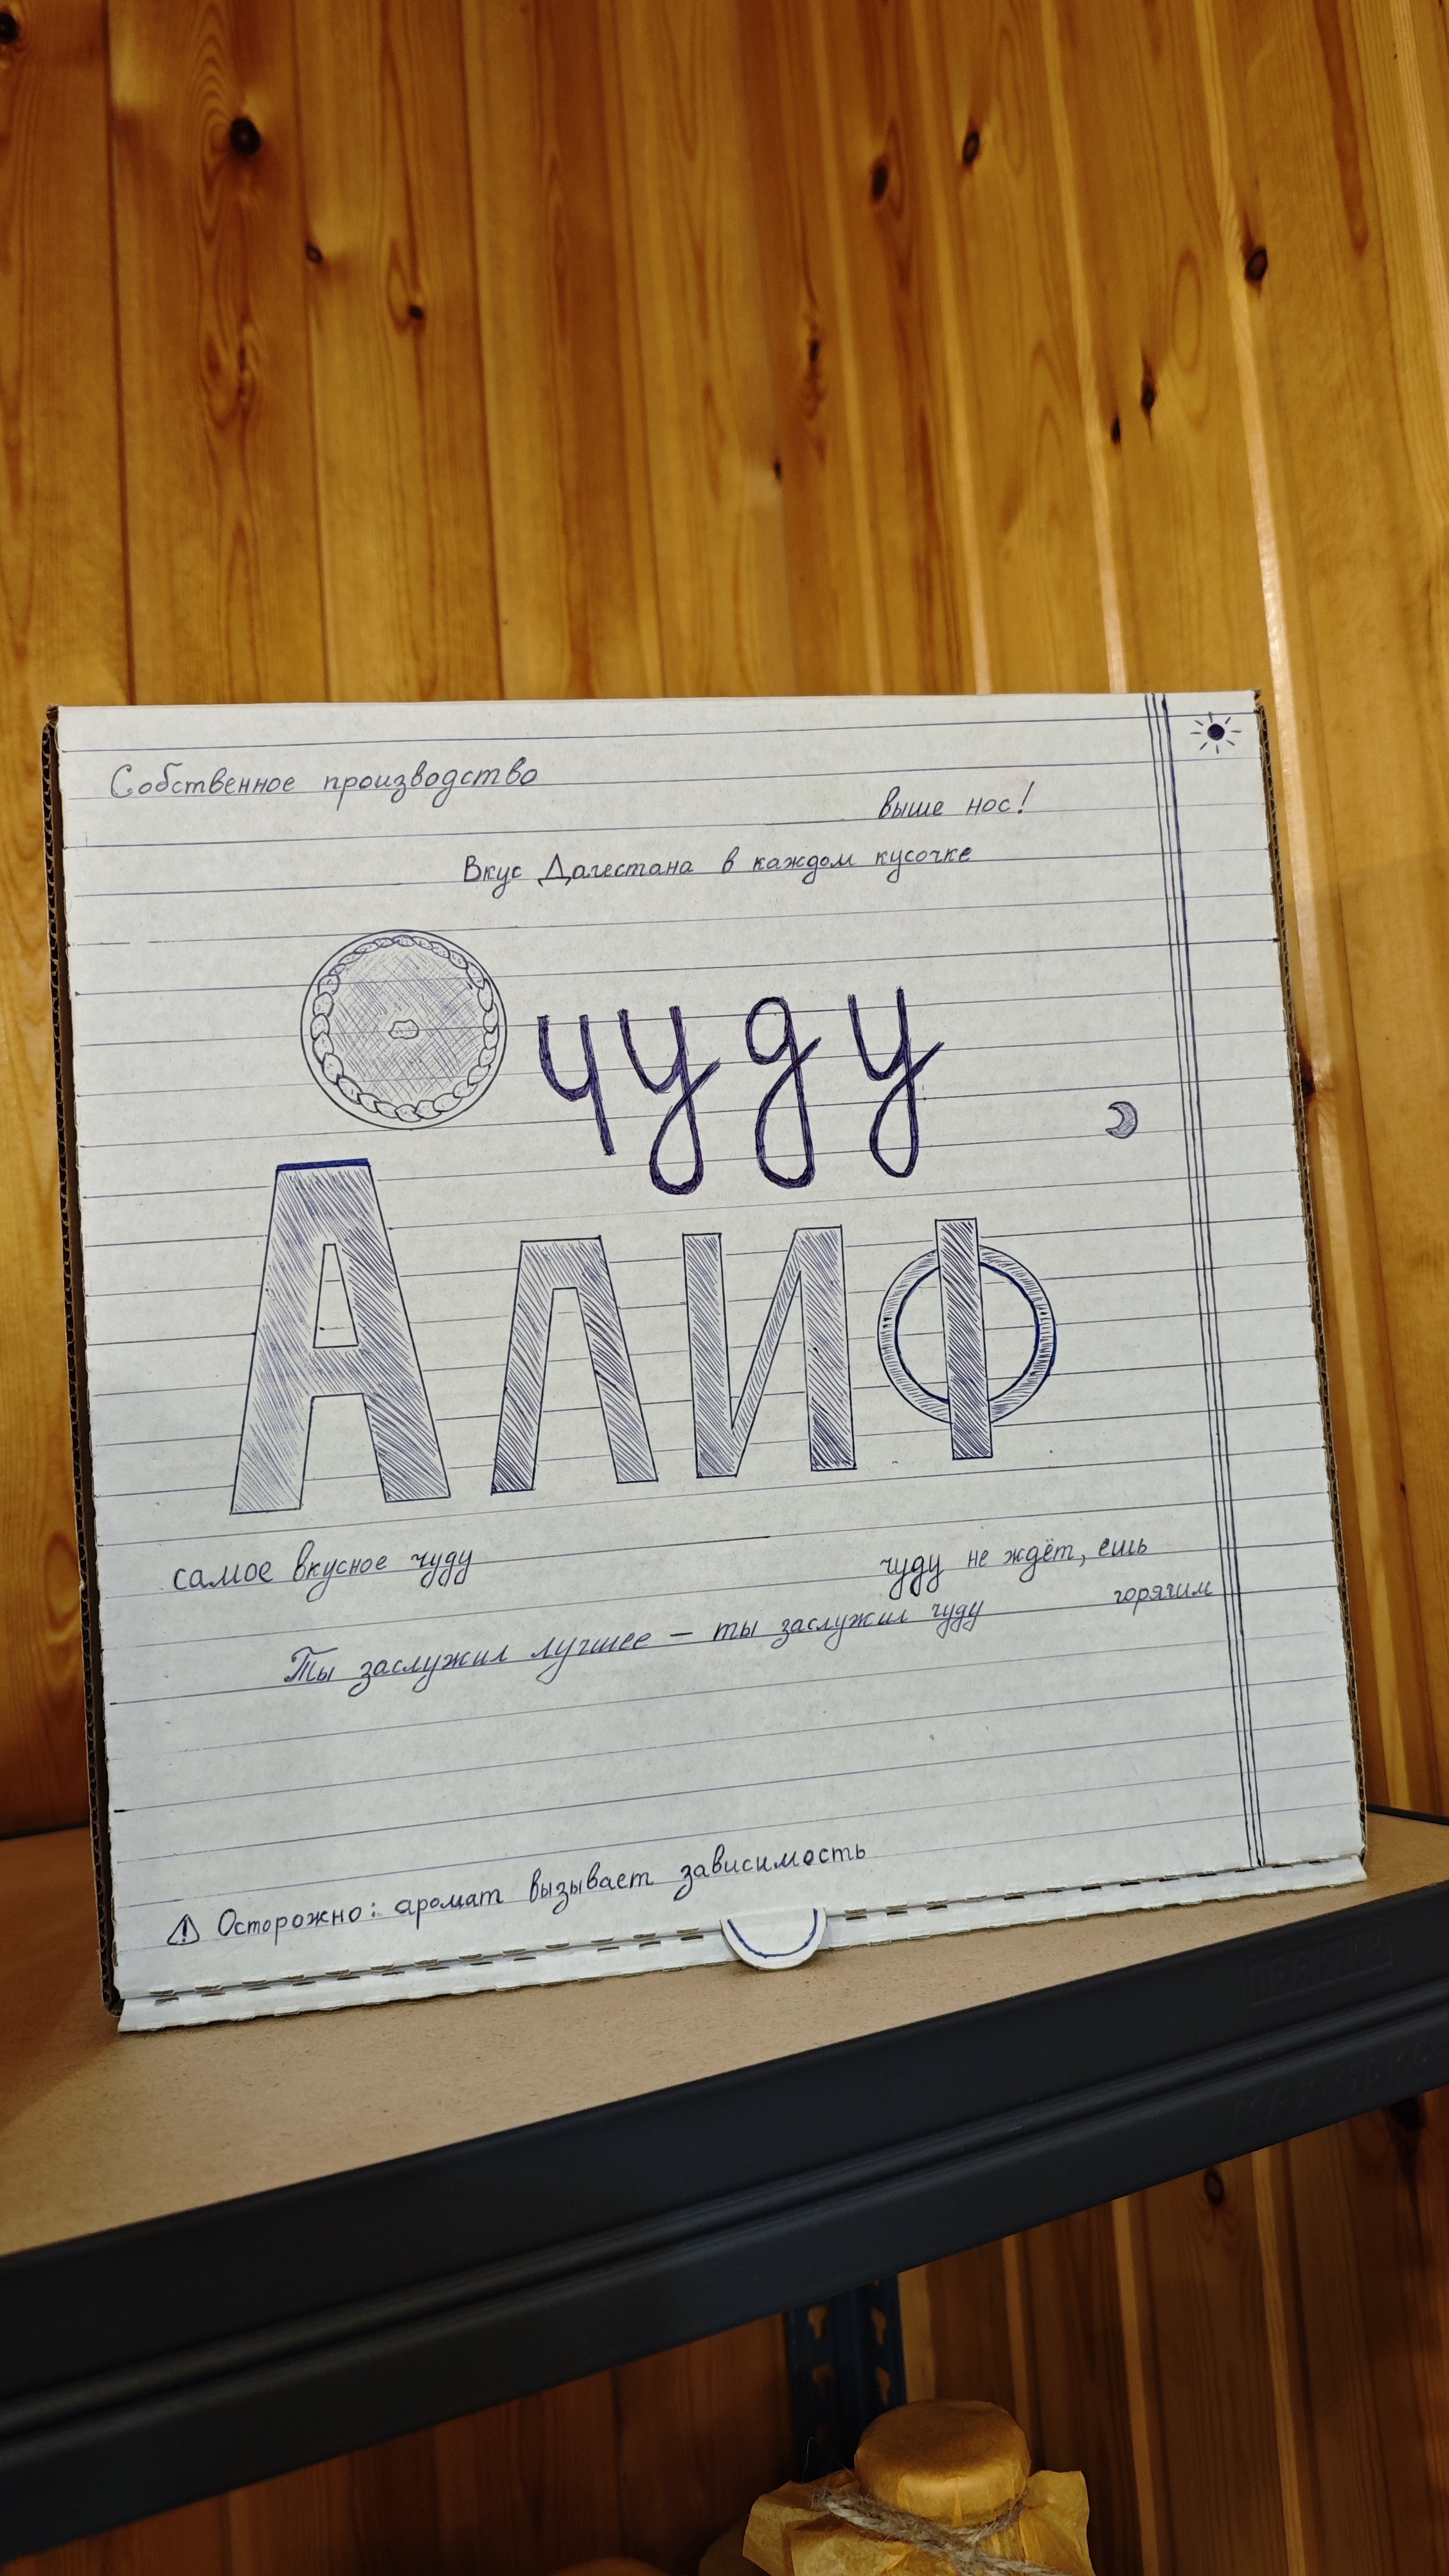 Собственное производство
выше нос!
Вкус Дагестана в каждом кусочке
чуду
Алиф
самое вкусное чуду
чуду не ждёт, ешь
горячим
Ты заслужил лучшее – ты заслужил чуду
⚠ Осторожно: аромат вызывает зависимость
ПРАКТИК